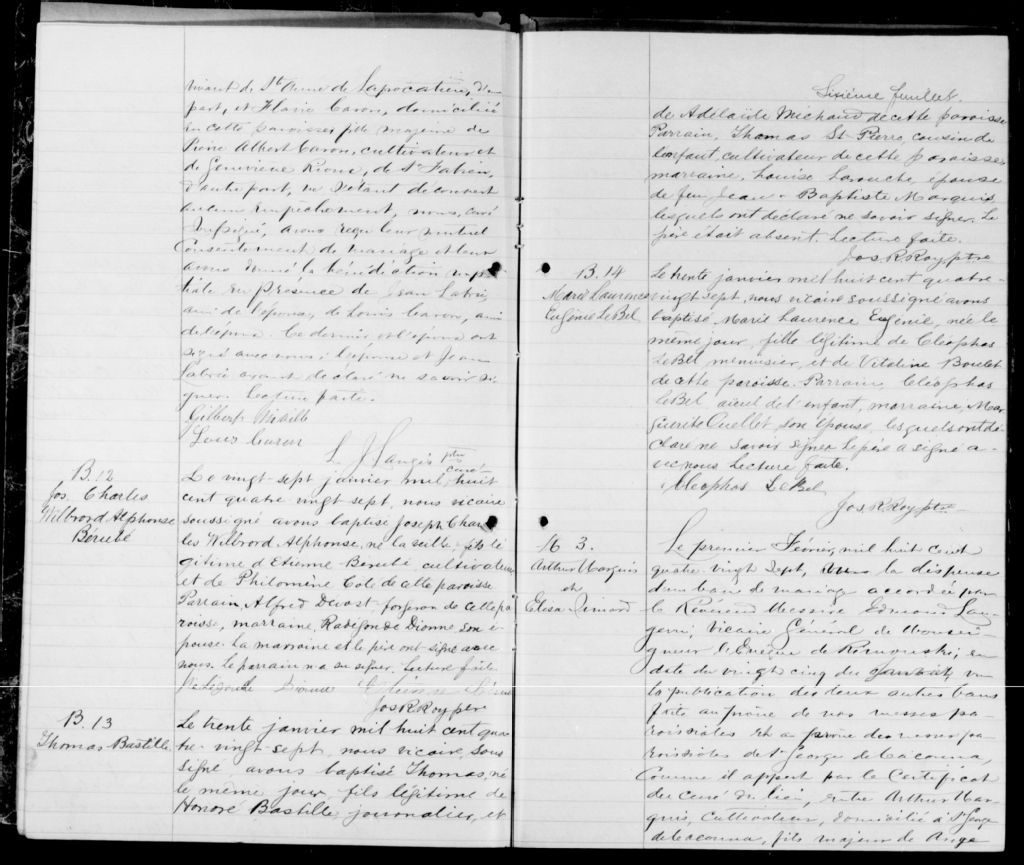 vivant de Ste Anne de Lapocatière, d'une
part, et Flavie Caron, domiciliée
en cette paroisse, fille majeure de
Pierre Albert Caron, cultivateur et
de Geneviève Rioux, de St Fabien,
d'autre part, ne s'étant découvert
aucun empêchement, nous, curé
soussigné, avons reçu leur mutuel
consentement de mariage et leur
avons donné la bénédiction nup-
tiale en présence de Jean Labrie,
ami de l'époux, de Louis Caron, ami
de l'épouse. Ce dernier, et l'époux ont
signé avec nous; l'épouse et Jean
Labrie ayant déclaré ne savoir si-
gner. Lecture faite.
Gilbert
Louis Caron
L. J. Langis ptre
curé
B. 12
Jos. Charles
Wilbrord Alphonse
Bérubé
Le vingt-sept janvier mil huit
cent quatre vingt sept, nous vicaire
soussigné avons baptisé Joseph Char
les Wilbrord Alphonse, né la veille, fils lé
gitime d'Etienne Bérubé cultivateur
et de Philomène Coté de cette paroisse
Parrain, Alfred forgeron de cette pa
roisse, marraine, Radégonde Dionne son é-
pouse. la marraine et le père ont signé avec
nous. le parrain n'a su signer. Lecture faite
Radégonde Dionne Etienne Bérubé
Jos R Roy ptre
B. 13
Thomas Bastille
Le trente janvier mil huit cent qua
tre-vingt-sept, nous vicaire, sous
signé avons baptisé Thomas, né
le même jour, fils légitime de
Honoré Bastille, journalier, et
Sixième feuillet.
de Adélaïde Michaud de cette paroisse
Parrain, Thomas St Pierre, cousin de
l'enfant, cultivateur de cette paroisse,
marraine, Louise Larouche, épouse
de feu Jean-Baptiste Marquis
lesquels ont déclaré ne savoir signer. Le
père était absent. Lecture faite.
Jos R Roy ptre
B. 14
Marie Laurence
Eugénie LeBel
Le trente janvier mil huit cent quatre-
vingt sept, nous vicaire soussigné avons
baptisé Marie Laurence Eugénie, née le
même jour, fille légitime de Cléophas
LeBel menuisier, et de Vitaline Boulet
de cette paroisse. Parrain, Cléophas
LeBel, aïeul de l'enfant, marraine, Mar
guerite Ouellet, son épouse, lesquels ont dé
claré ne savoir signer le père a signé a-
vec nous Lecture faite.
Cleophas LeBel
Jos R Roy ptre
M 3.
Arthur Marquis
et
Elisa Simard
Le premier Février, mil huit cent
quatre-vingt sept, vu la dispense
d'un ban de mariage accordée par
le Révérend Messire Edmond Lan-
gevin, Vicaire Général de Monsei-
gneur l'Evêque de Rimouski, en
date du vingt cinq du janvier, vu
la publication des deux autres bans
faite au prône de nos messes pa-
roissiales et au prône des messes pa-
roissiales de St George de Cacouna,
comme il appert par le certificat
du curé du lieu, entre Arthur Mar-
quis, cultivateur, domicilié à St George
de Cacouna, fils majeur de Ange